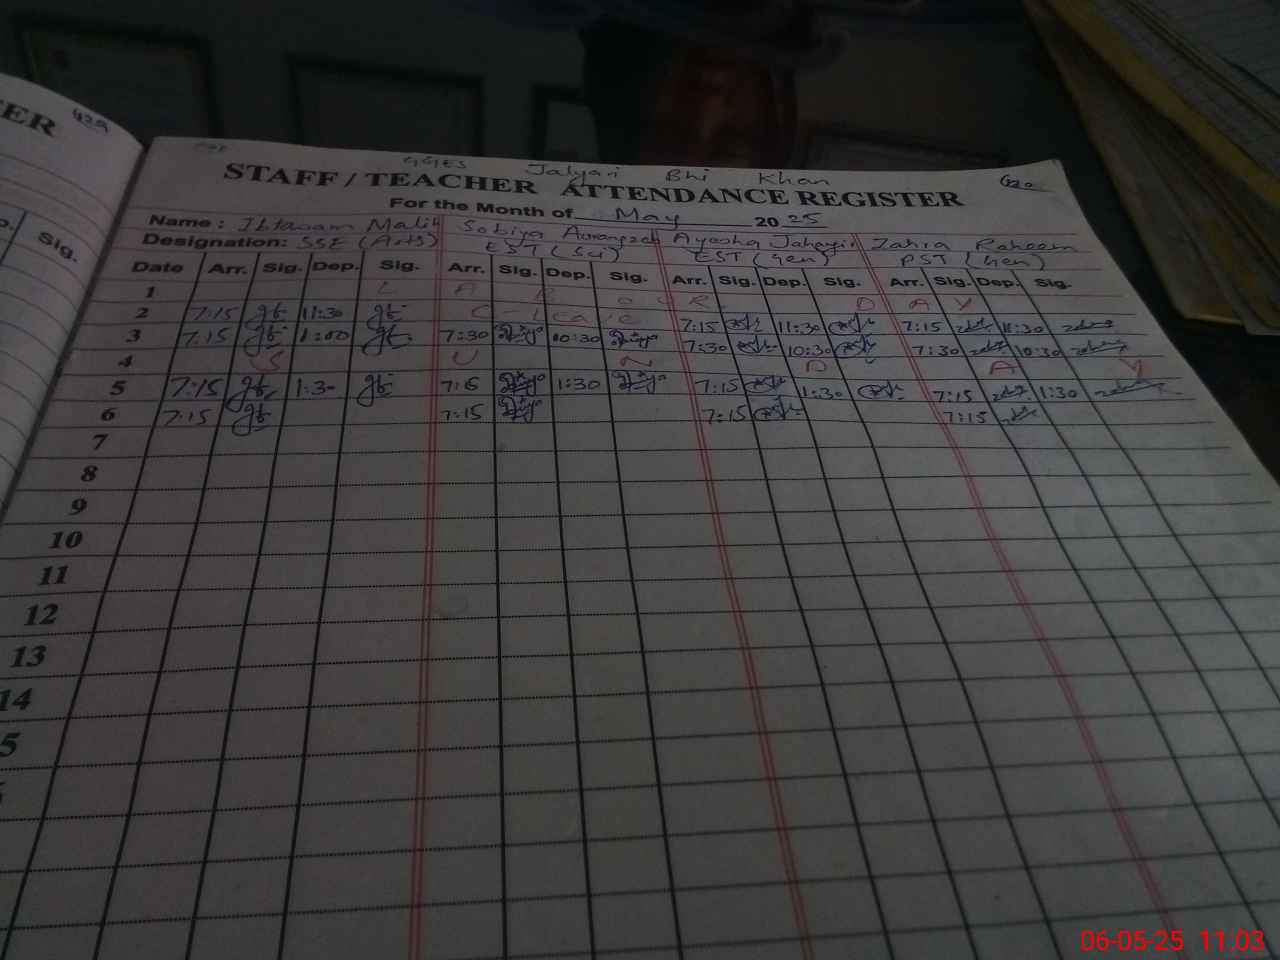 ER 429
Sig.
GGES Jalyari Bhi Khan
STAFF / TEACHER ATTENDANCE REGISTER
For the Month of May 2025
Name : Ibtasam Malik Sobiya Aurangzeb Ayesha Jahangir Zahra Raheem
Designation: SSE (Arts) EST (Sci) EST (Gen) PST (Gen)
Date Arr. Sig. Dep. Sig. Arr. Sig. Dep. Sig. Arr. Sig. Dep. Sig. Arr. Sig. Dep. Sig.
1 L A B O U R D A Y
2 7:15 11:30 C-Leave 7:15 11:30 7:15 11:30
3 7:15 1:00 7:30 10:30 7:30 10:30 7:30 10:30
4 S U N D A Y
5 7:15 1:30 7:15 1:30 7:15 1:30 7:15 1:30
6 7:15 7:15 7:15 7:15
7
8
9
10
11
12
13
14
5
06-05-25 11:03